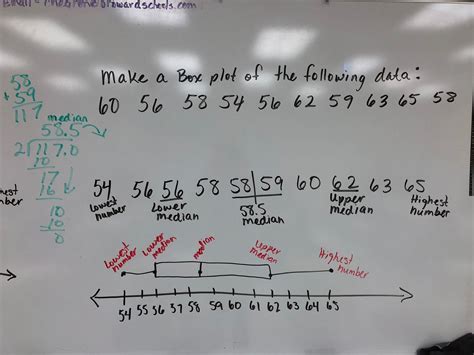 Make a Box plot of the following data:
60 56 58 54 56 62 59 63 65 58
58
+ 59
117
median
58.5
2 117.0
10
17
16
10
- 10
0
54 56 56 58 58 59 60 62 63 65
Lowest number
Lower median
58.5 median
Upper median
Highest number
Lowest number
Lower median
median
Upper median
Highest number
54 55 56 57 58 59 60 61 62 63 64 65